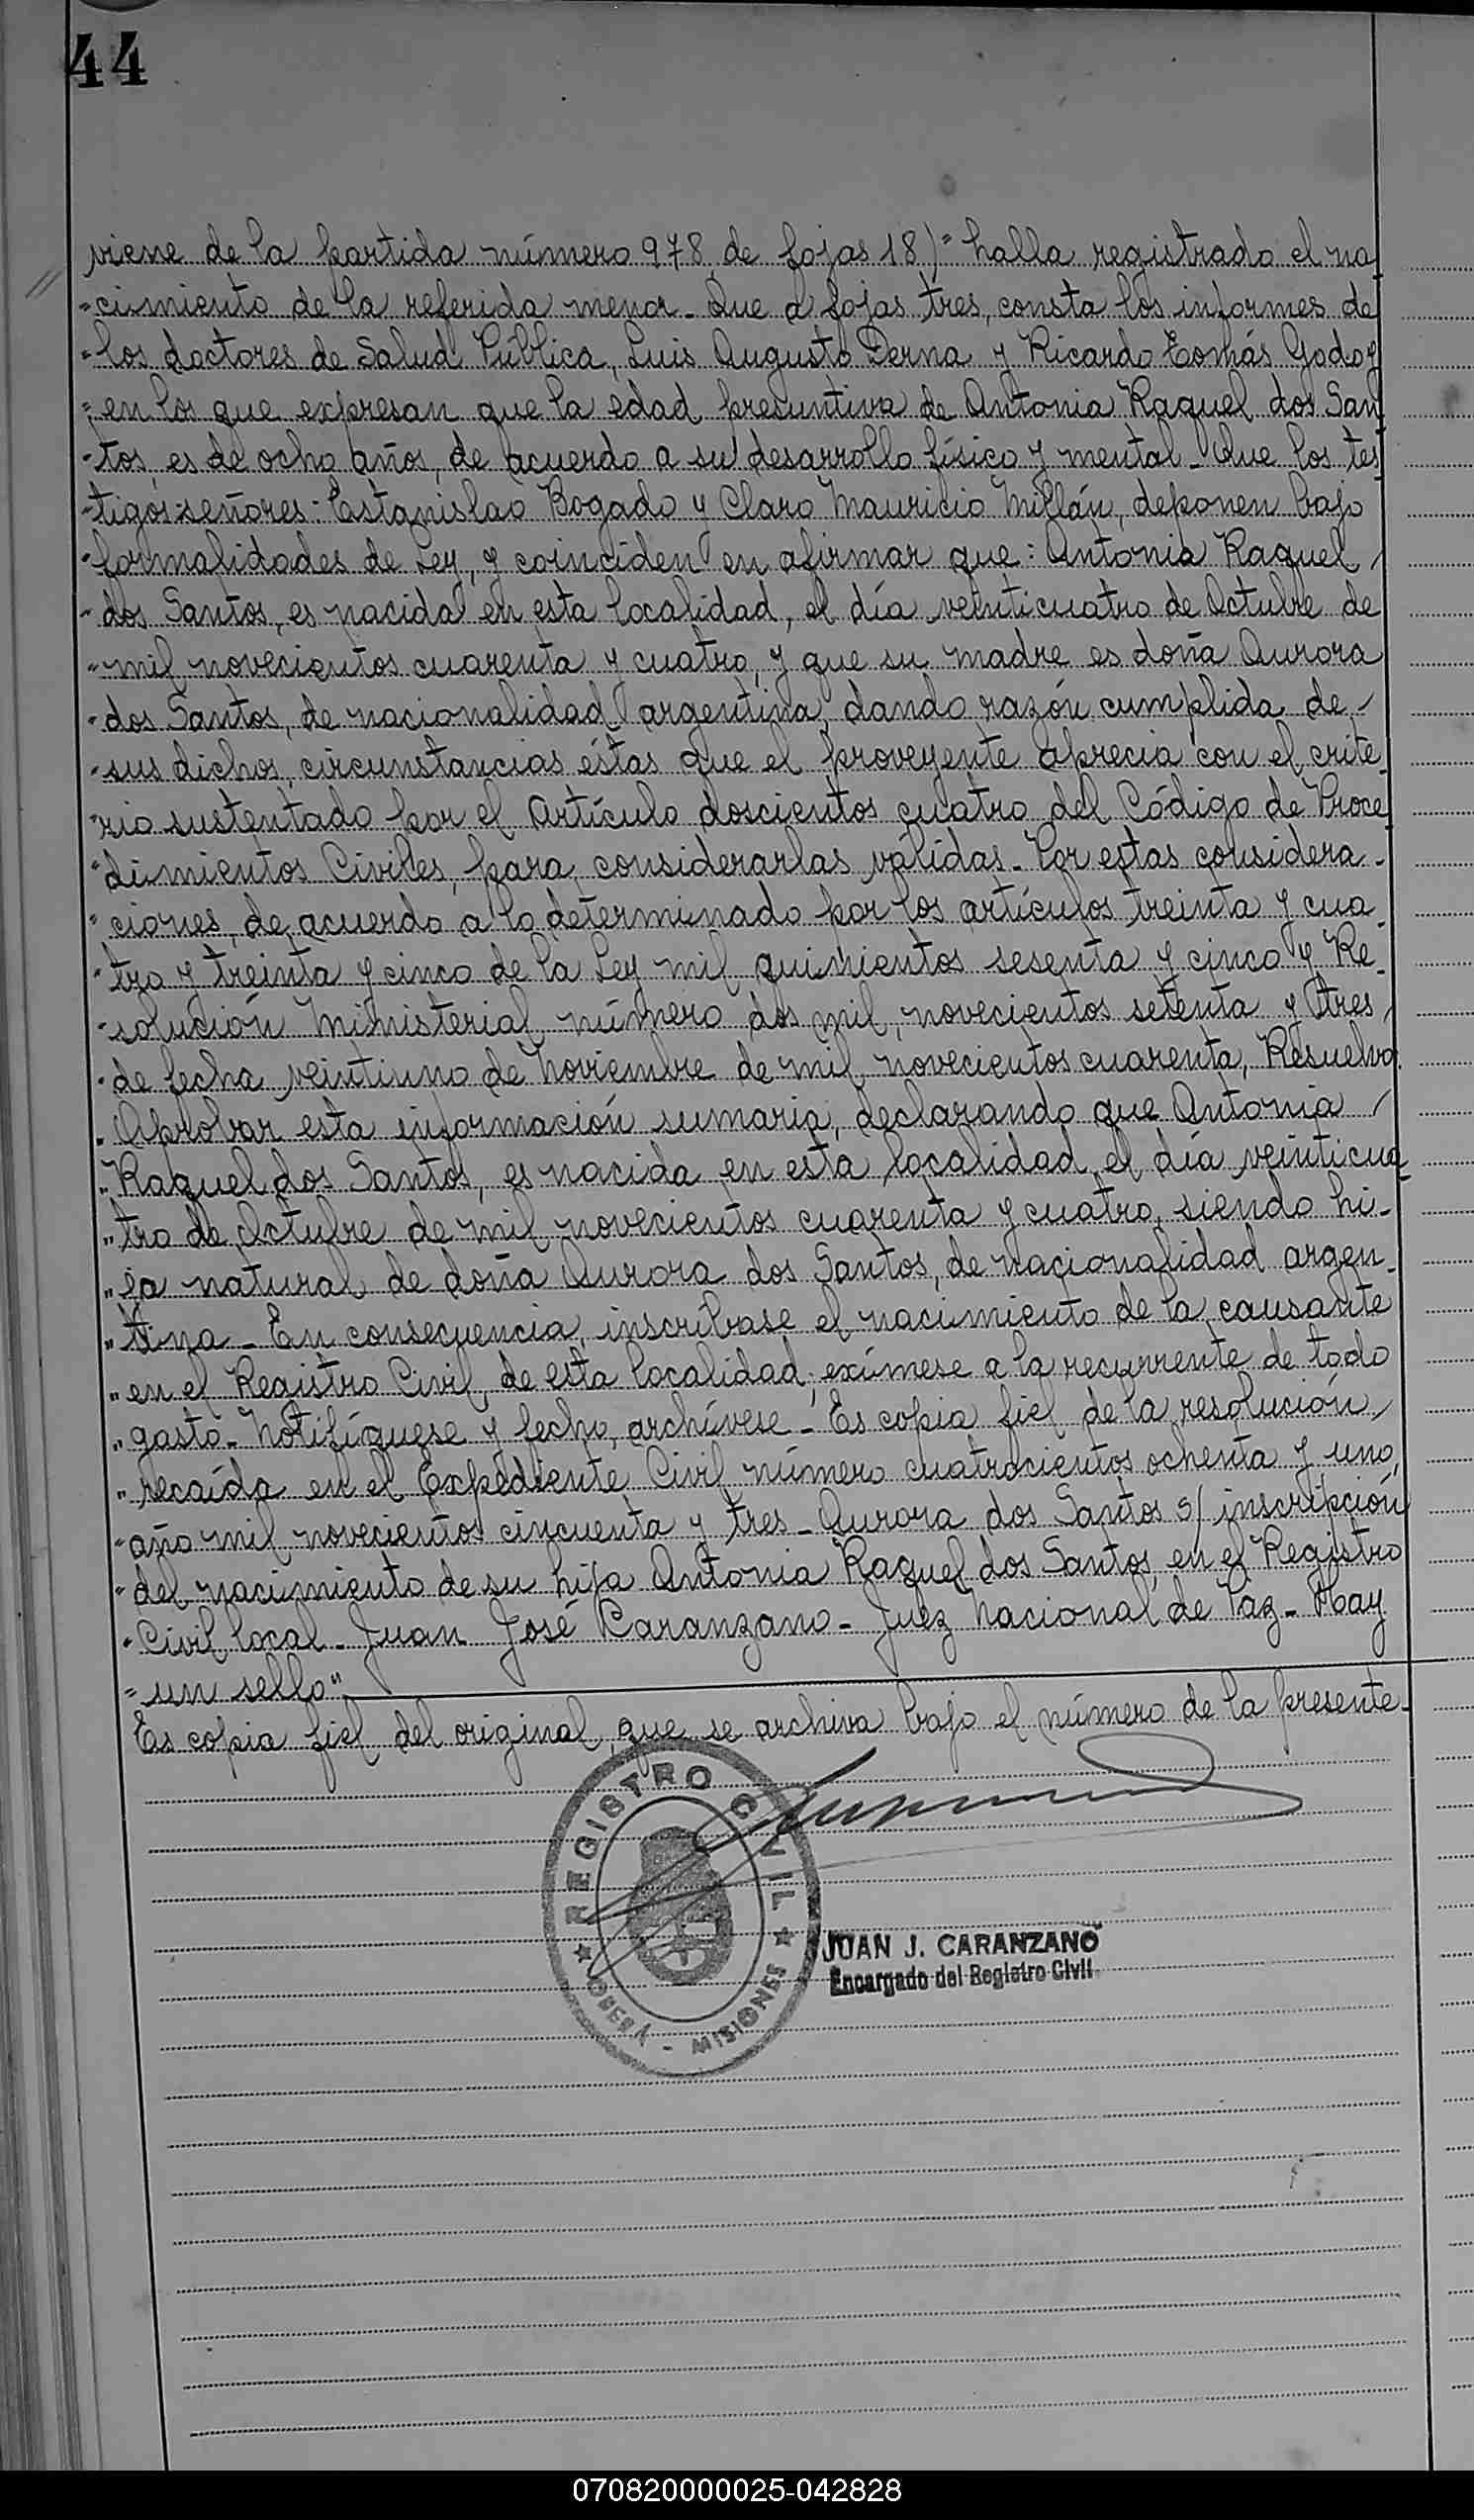 44
viene de la partida número 978 de fojas 18)" halla registrado el na
"cimiento de la referida menor_ Que a fojas tres, consta los informes de
"los doctores de Salud Pública, Luis Augusto Derna y Ricardo Tomás Godoy
"en los que expresan que la edad presuntiva de Antonia Raquel dos San
"tos, es de ocho años, de acuerdo a su desarrollo físico y mental_ Que los tes
"tigos señores: Estanislao Bogado y Claro Mauricio Millán, deponen bajo
"formalidades de Ley, y coinciden en afirmar que: Antonia Raquel /
"dos Santos, es nacida en esta localidad, el día veinticuatro de Octubre de
"mil novecientos cuarenta y cuatro, y que su madre es doña Aurora
"dos Santos, de nacionalidad argentina, dando razón cumplida de /
"sus dichos, circunstancias éstas que el proveyente aprecia con el crite_
"rio sustentado por el Artículo doscientos cuatro del Código de Proce
"dimientos Civiles, para considerarlas válidas_ Por estas considera_
"ciones, de acuerdo a lo determinado por los artículos treinta y cua_
"tro y treinta y cinco de la Ley mil quinientos sesenta y cinco y Re_
"solución Ministerial número dos mil, novecientos setenta y tres /
"de fecha veintiuno de Noviembre de mil novecientos cuarenta, Resuelvo
"Aprobar esta información sumaria, declarando que Antonia /
"Raquel dos Santos, es nacida en esta localidad el día veinticua
"tro de Octubre de mil novecientos cuarenta y cuatro, siendo hi_
"ja natural de doña Aurora dos Santos, de nacionalidad argen_
"tina_ En consecuencia, inscríbase el nacimiento de la causante
"en el Registro Civil, de esta localidad; exímese a la recurrente de todo
"gasto_ Notifíquese y fecho, archívese_ Es copia fiel de la resolución /
"recaída en el Expediente Civil número cuatrocientos ochenta y uno,
"año mil novecientos cincuenta y tres_ Aurora dos Santos s/ inscripción
"del nacimiento de su hija Antonia Raquel dos Santos, en el Registro
"Civil local_ Juan José Caranzano_ Juez Nacional de Paz_ Hay
"un sello"
Es copia fiel del original, que se archiva bajo el número de la presente_
REGISTRO CIVIL
OBERÁ - MISIONES
JUAN J. CARANZANO
Encargado del Registro Civil
070820000025-042828